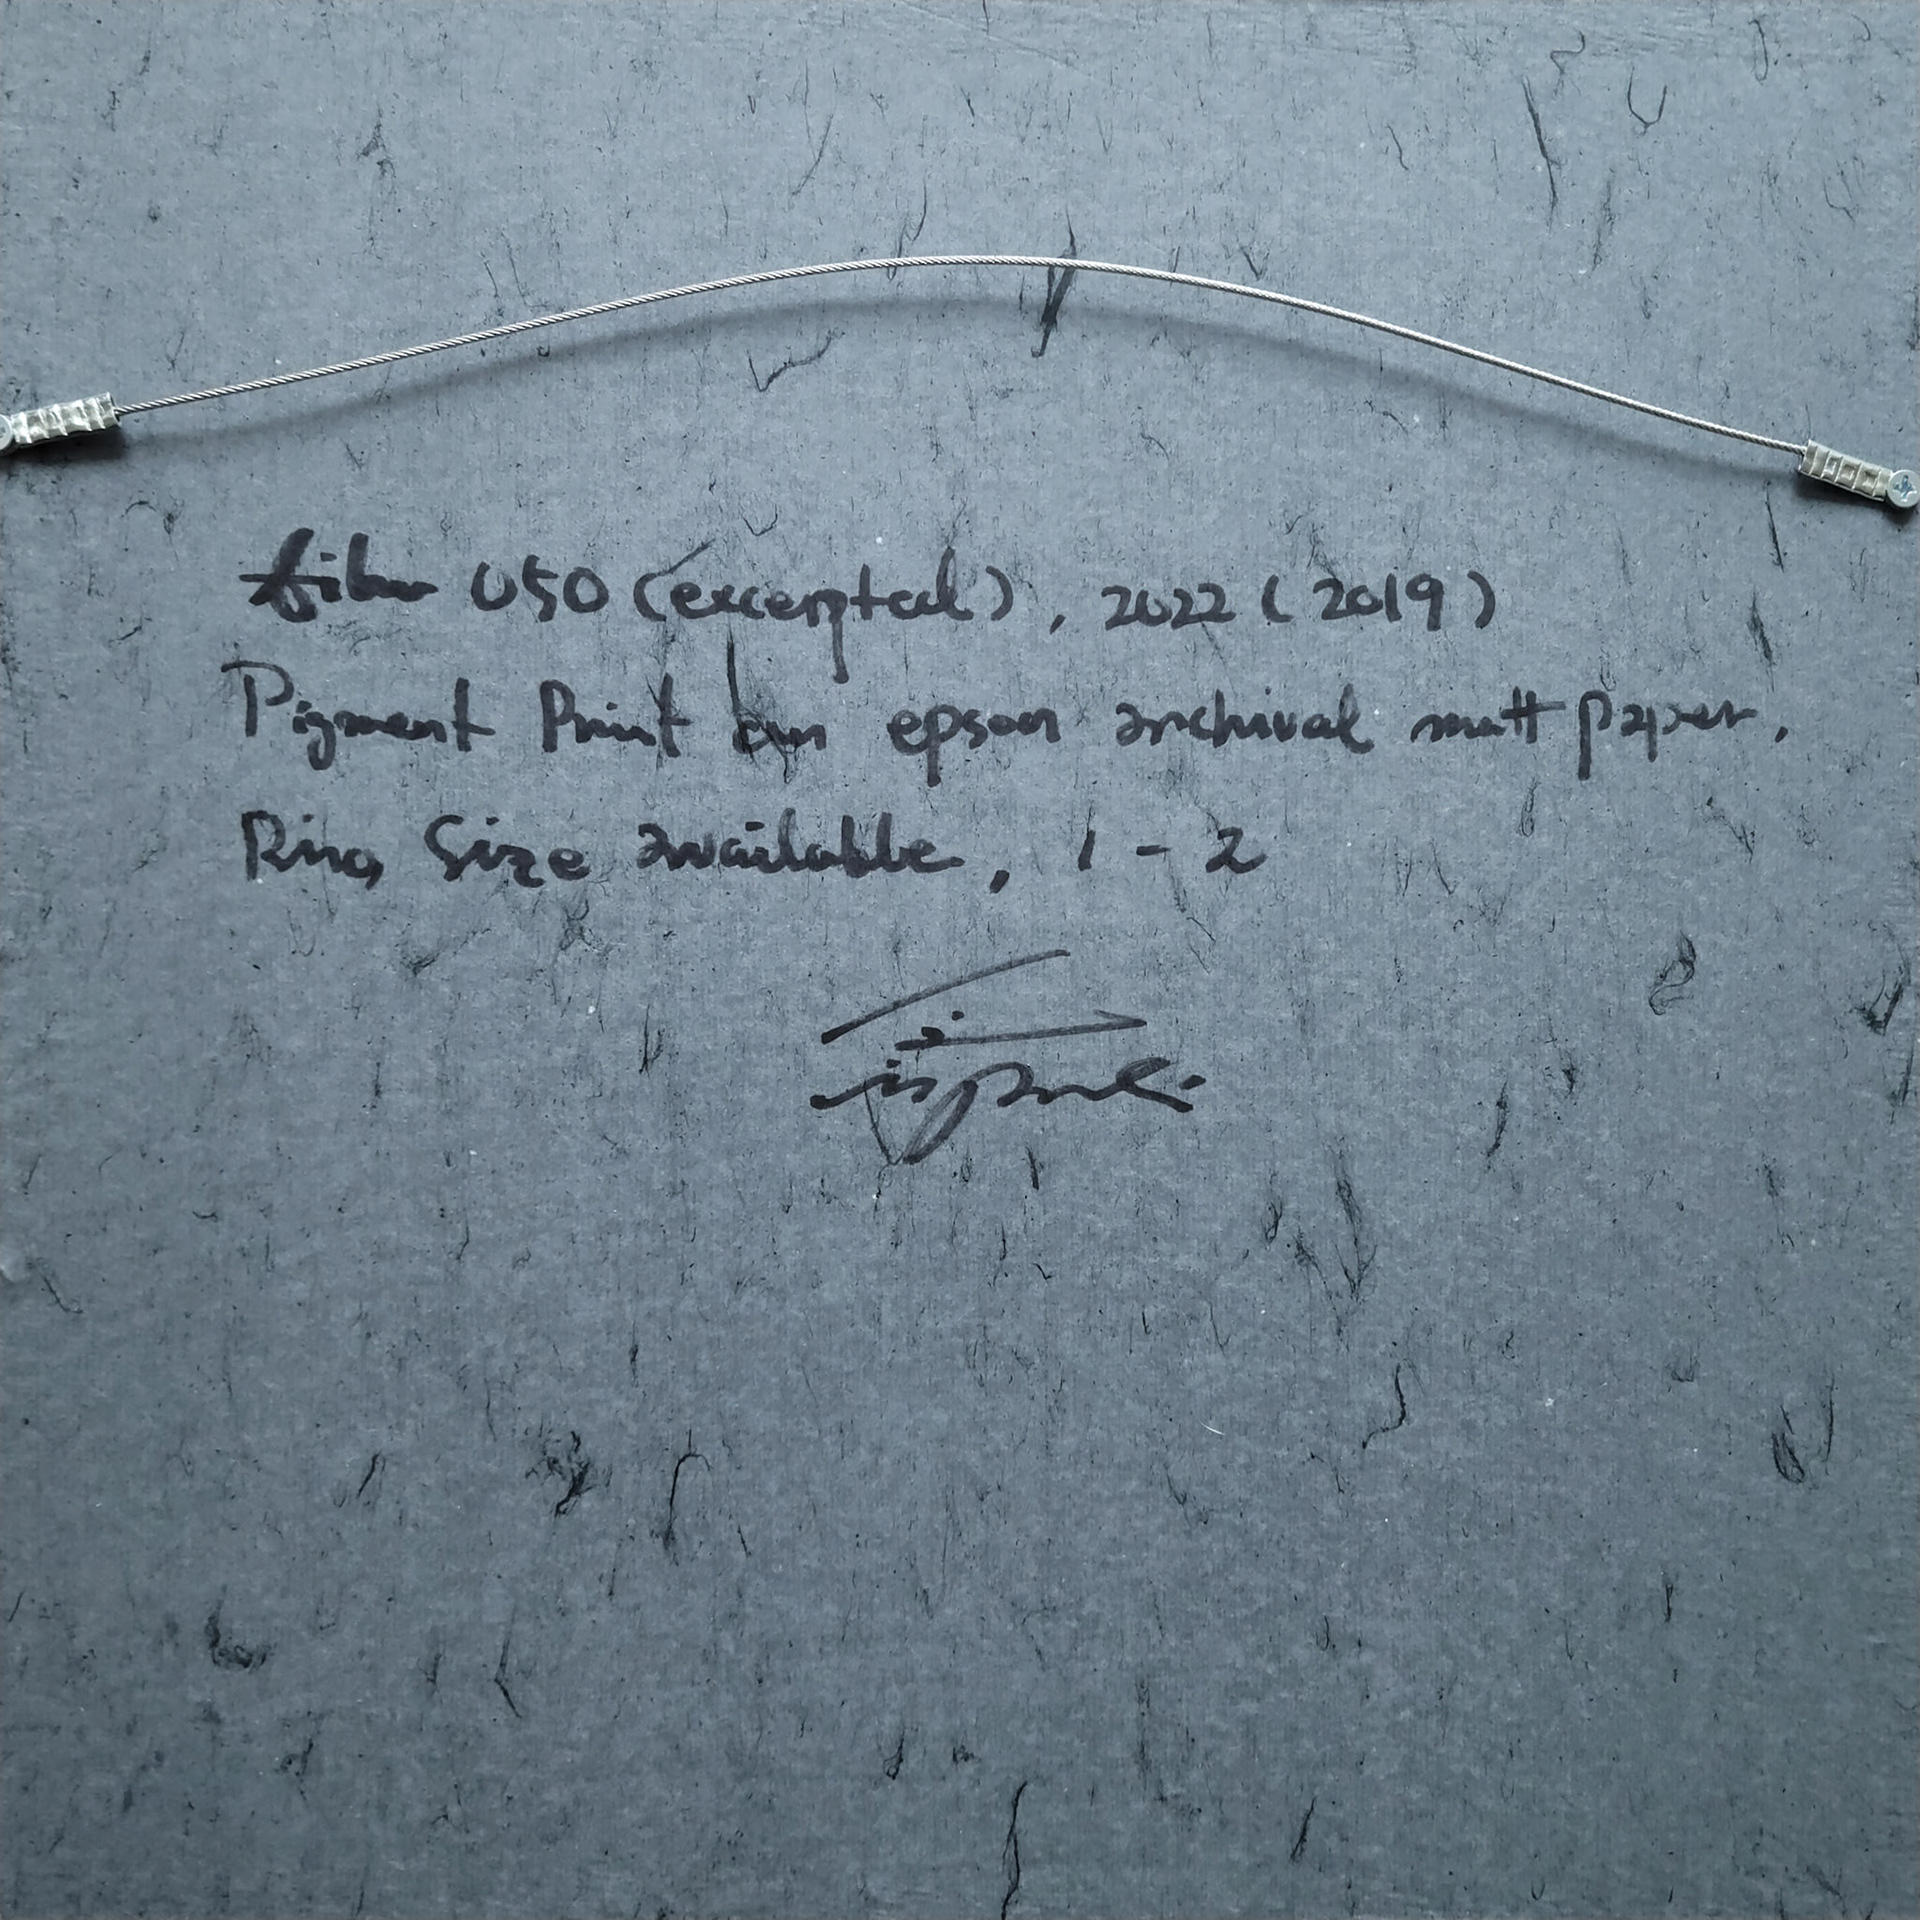 fiber 050 (excerpted), 2022 (2019)
Pigment Print on epson archival matt paper.
Ring Size available, 1 - 2